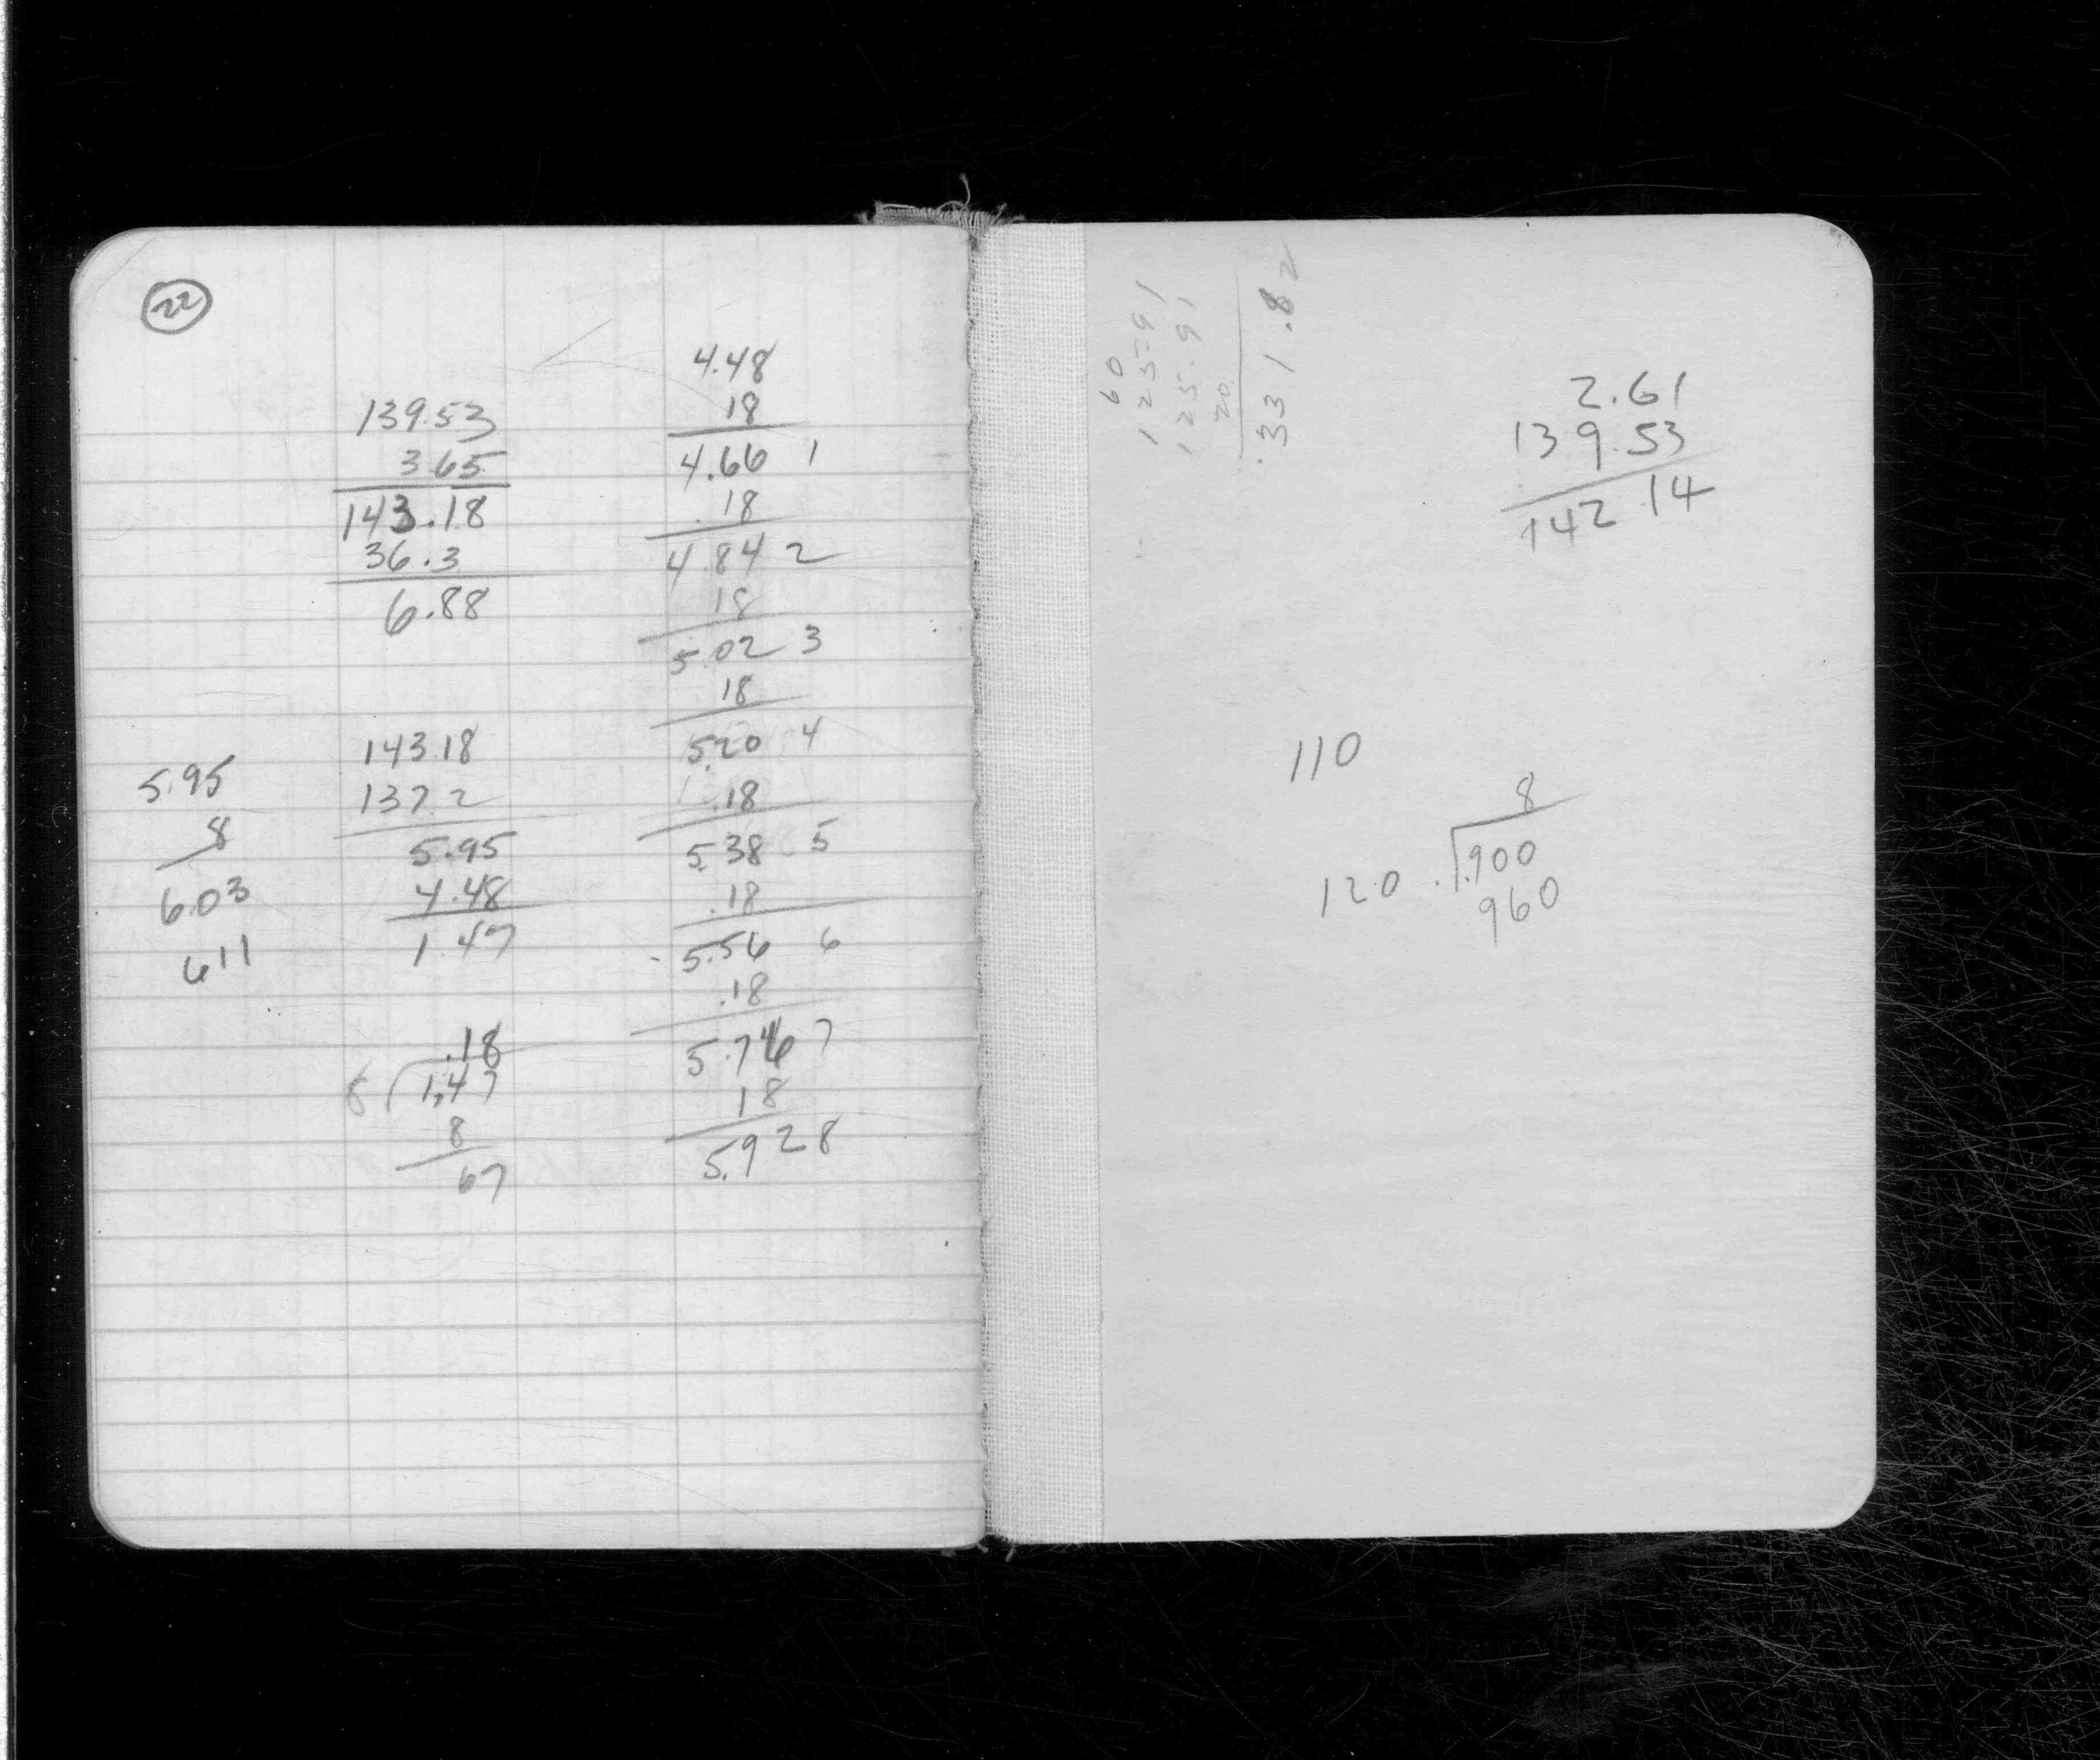 22
139.53
3.65
143.18
36.3
6.88
143.18
137.2
5.95
4.48
1.47
.18
8 1.47
8
67
5.95
8
6.03
611
4.48
18
4.66 1
.18
4.84 2
18
5.02 3
18
5.20 4
.18
5.38 5
.18
5.56 6
.18
5.74 7
18
5.92 8
60
125.91
125.91
20
331.82
2.61
139.53
142.14
110
8
120 .900
960